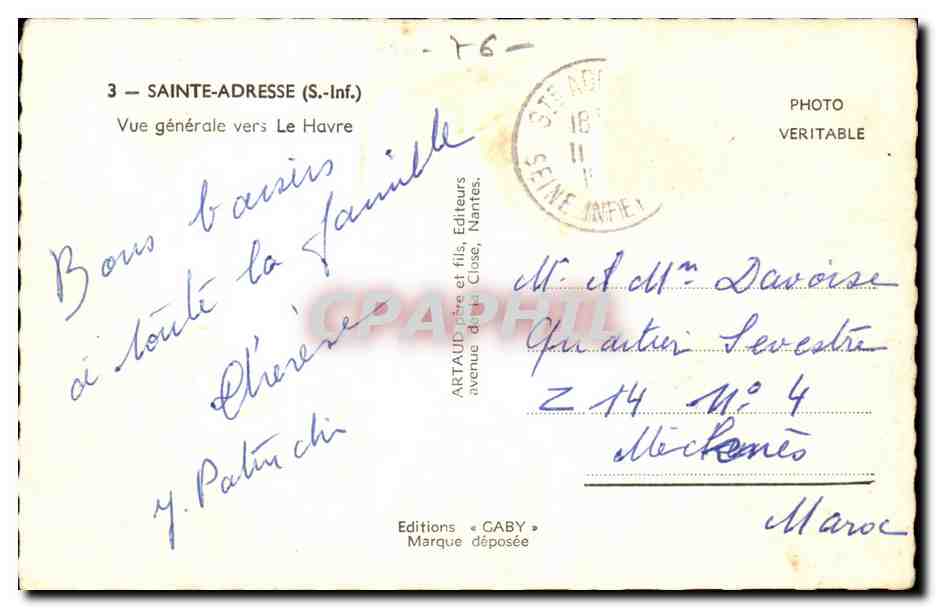 - 76 -
3 — SAINTE-ADRESSE (S.-Inf.)
Vue générale vers Le Havre
Bons baisers
à toute la famille
Thérèse
STE ADR
18
11
SEINE INFE
PHOTO
VERITABLE
ARTAUD père et fils, Editeurs
avenue de la Close, Nantes.
CPAPHIL
M. & Mme Davoise
Quartier Sevestre
Z 14 N° 4
Mecknès
Maroc
Editions « GABY »
Marque déposée